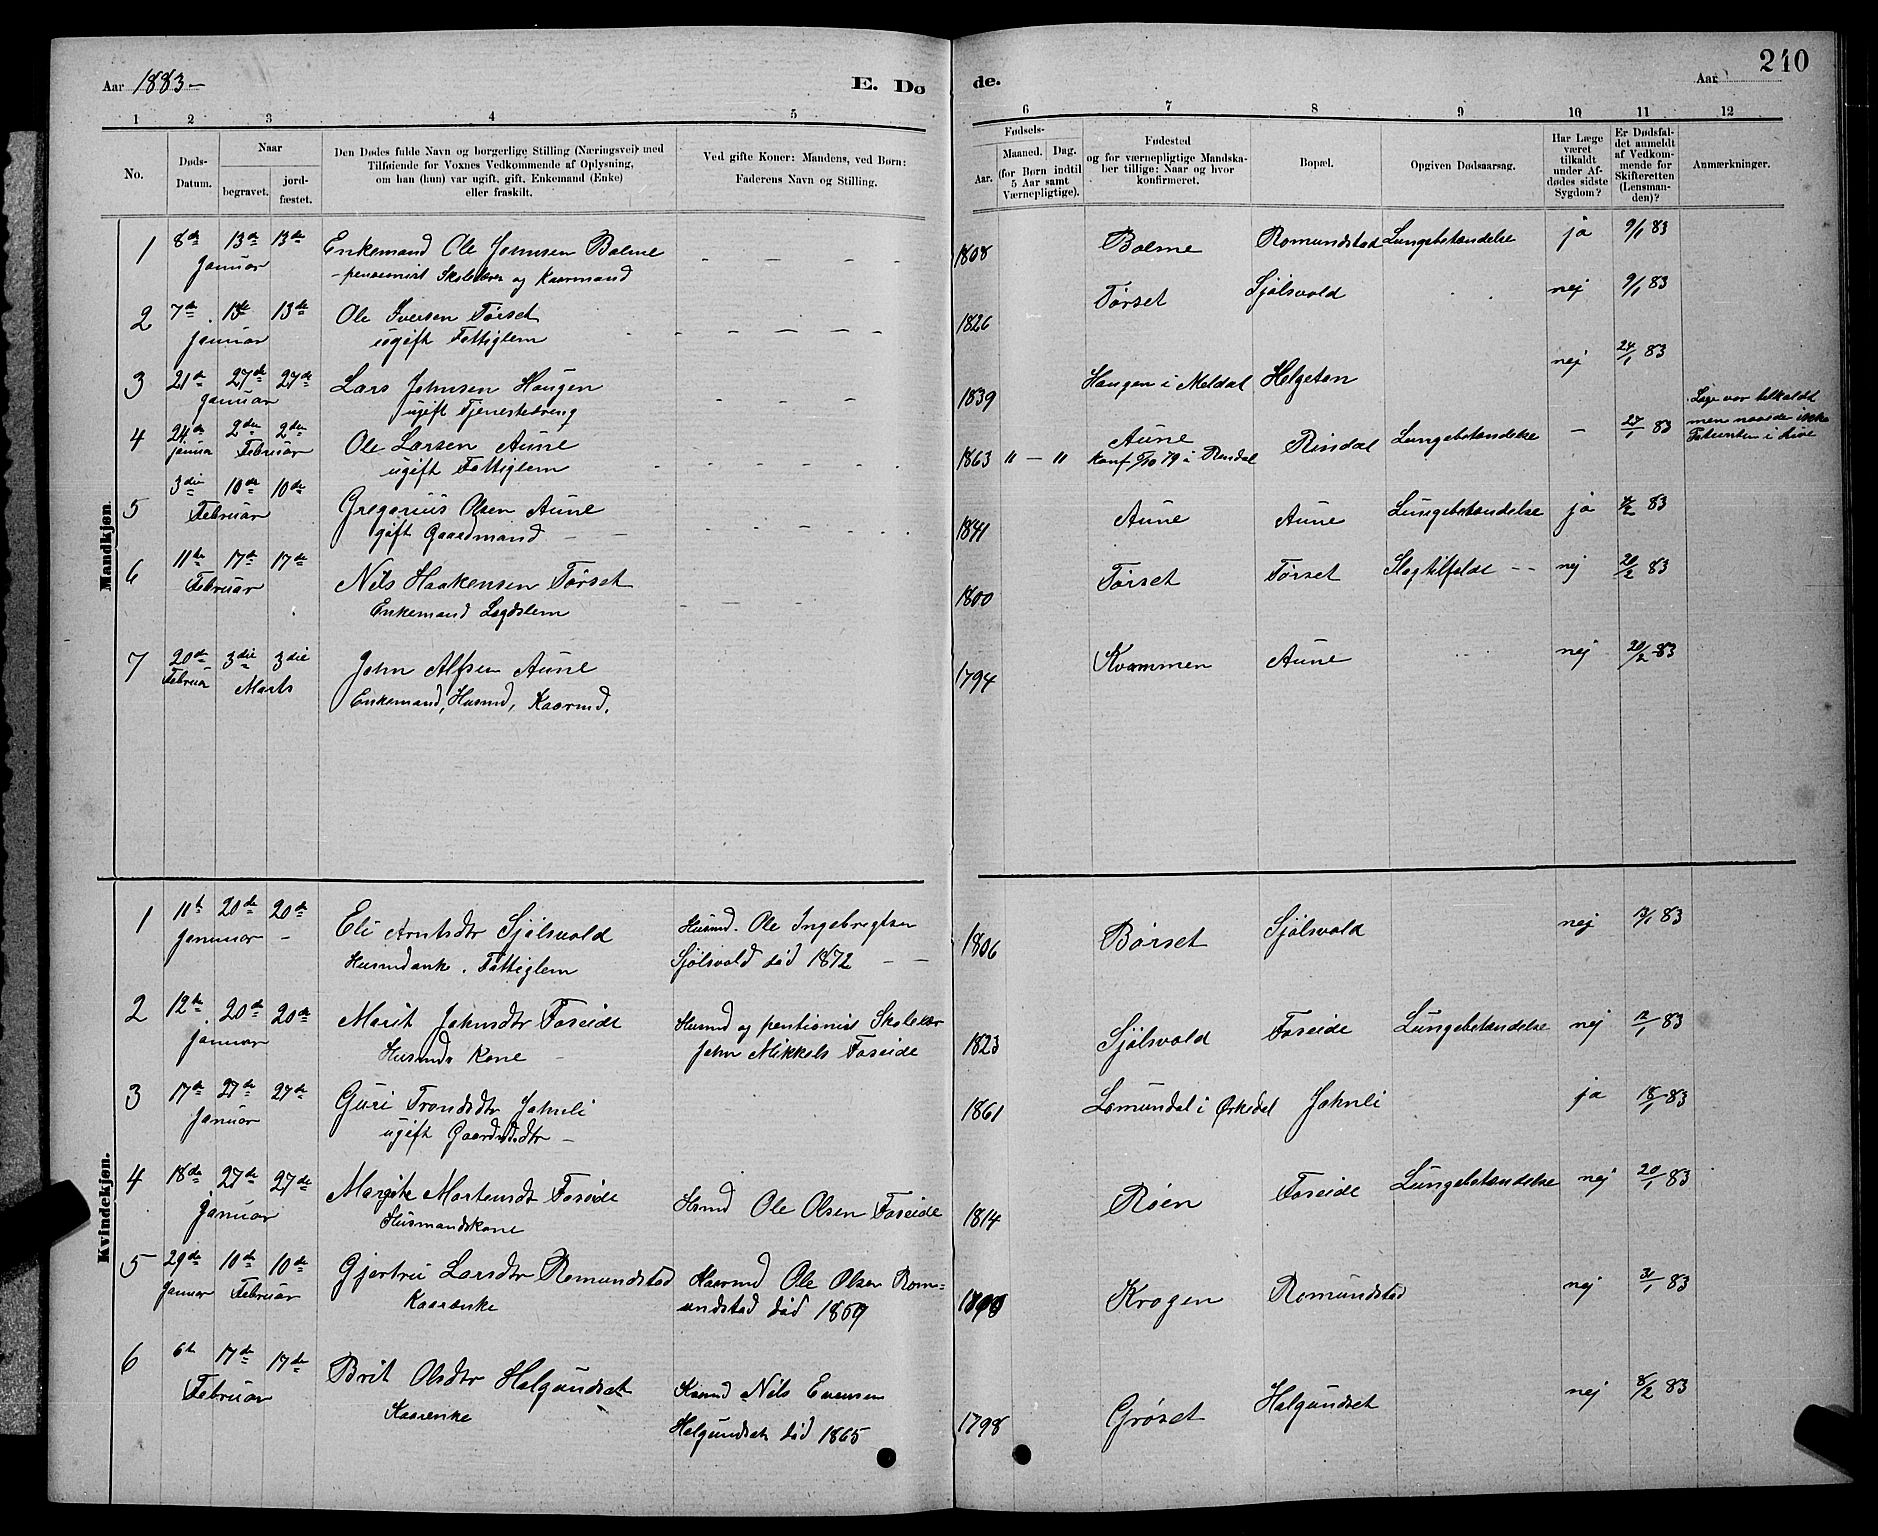 Aar 1883-
E. Dø
de.
Aar
210
1 2 3 4 5
No.
Døds-
Datum.
Naar
begravet.
jord-
fæstet.
Den Dødes fulde Navn og borgerlige Stilling (Næringsvei) med
Tilføiende for Voxnes Vedkommende af Oplysning,
om han (hun) var ugift, gift, Enkemand (Enke)
eller fraskilt.
Ved gifte Koner: Mandens, ved Børn:
Faderens Navn og Stilling.
6 7 8 9 10 11 12
Fødsels-
Aar.
Maaned. Dag.
(for Børn indtil
5 Aar samt
Værnepligtige).
Fødested
og for værnepligtige Mandska-
ber tillige: Naar og hvor
konfirmeret.
Bopæl.
Opgiven Dødsaarsag.
Har Læge
været
tilkaldt
under Af-
dødes sidste
Sygdom?
Er Dødsfal-
det anmeldt
af Vedkom-
mende for
Skifteretten
(Lensman-
den)?
Anmærkninger.
Mandkjøn.
1 8de 13de 13de Enkemand Ole Johnsen Bolme - - - - 1808 Bolme Romundstad Lungebetændelse ja 9/1 83
Januar - pensionist Skolelærer og Kaarmand
2 7de 13de 13de Ole Iversen Tørset 1826 Tørset Sjølsvold nej 9/1 83
Januar ugift Fattiglem
3 21de 27de 27de Lars Johnsen Haugen 1839 Haugen i Meldal Helgeton nej 24/1 83
Januar ugift Tjenestedreng
4 24de 2den 2den Ole Larsen Aune 1863 " - " Aune Rindal Lungebetændelse - 27/1 83 Læge var tilkaldt
Januar Februar ugift Fattiglem konf. 5/10 79 i Rindal men naaede ikke
Patienten i Live
5 3die 10de 10de Gregorius Olsen Aune 1841 Aune Aune Lungebetændelse ja 4/2 83
Februar gift Gaardmand
6 11te 17de 17de Nils Haakensen Tørset 1800 Tørset Tørset Slagtilfælde - - nej 20/2 83
Februar Enkemand Lægdslem
7 20de 3die 3die John Alfsen Aune 1794 Kvammen Aune nej 20/2 83
Februar Marts Enkemand, Husmd, Kaarmd.
Kvindekjøn.
1 11te 20de 20de Eli Arntsdtr Sjølsvold Husmd. Ole Ingebregtsen 1806 Børset Sjølsvold nej 12/1 83
Januar - Husmdenke. Fattiglem Sjølsvold død 1872 - -
2 12te 20de 20de Marit Johnsdtr Foseide Husmd og pentionist Skolelær 1823 Sjølsvold Foseide Lungebetændelse nej 12/1 83
Januar Husmds Kone John Mikkels Foseide
3 17de 27de 27de Guri Trondsdtr Johnli 1861 Lomundal i Ørkedal Johnli ja 18/1 83
Januar ugift Gaardmdsdtr -
4 18de 27de 27de Margite Mortensdt Foseide Hsmd Ole Olsen Foseide 1814 Røen Foseide Lungebetændelse nej 20/1 83
Januar Husmandskone
5 29de 10de 10de Gjertru Larsdtr Romundstad Kaarmd Ole Olsen Rom- Krogen Romundstad nej 31/1 83
Januar Februar Kaarenke undstad død 1859
6 6te 17de 17de Brit Olsdtr Halgundset Kaarmd Nils Evensen 1798 Grøset Halgundset nej 8/2 83
Februar Kaarenke Halgundset død 1865